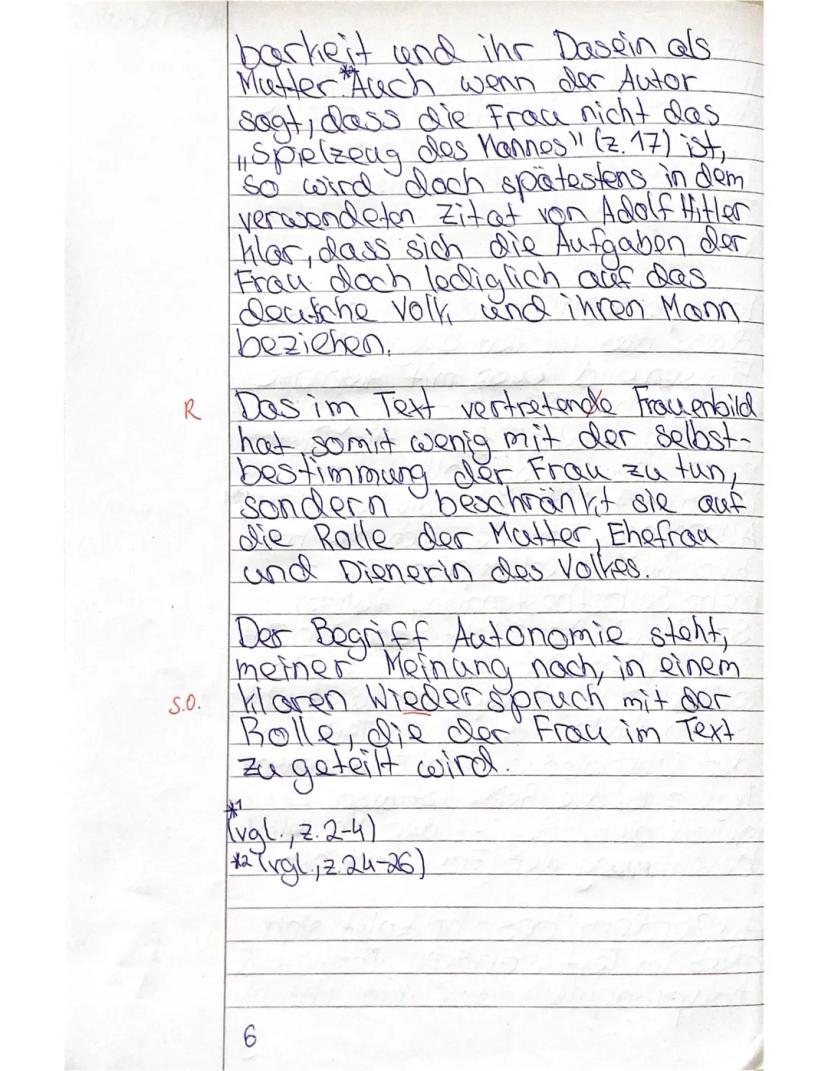 barkeit und ihr Dasein als
Mutter.*² Auch wenn der Autor
sagt, dass die Frau nicht das
„Spielzeug des Mannes" (Z. 17) ist,
so wird doch spätestens in dem
verwendeten Zitat von Adolf Hitler
klar, dass sich die Aufgaben der
Frau doch lediglich auf das
deutsche Volk und ihren Mann
beziehen.
R Das im Text vertretende Frauenbild
hat somit wenig mit der Selbst-
bestimmung der Frau zu tun,
sondern beschränkt sie auf
die Rolle der Mutter, Ehefrau
und Dienerin des Volkes.
Der Begriff Autonomie steht,
meiner Meinung nach, in einem
s.o. klaren Wiederspruch mit der
Rolle, die der Frau im Text
zu geteilt wird.
*1
(vgl., Z. 2-4)
*2 (vgl., Z. 24-26)
6